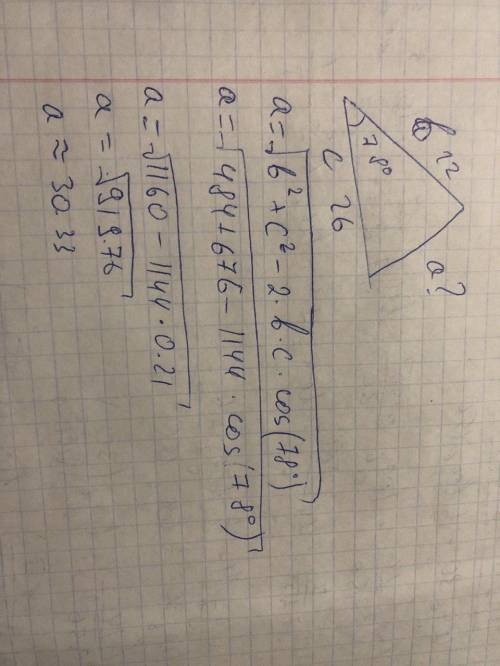 b 22
a?
78°
c 26
a = √b² + c² - 2 · b · c · cos(78°)
a = √484 + 676 - 1144 · cos(78°)
a = √1160 - 1144 · 0.21
a = √919.76
a ≈ 30.33